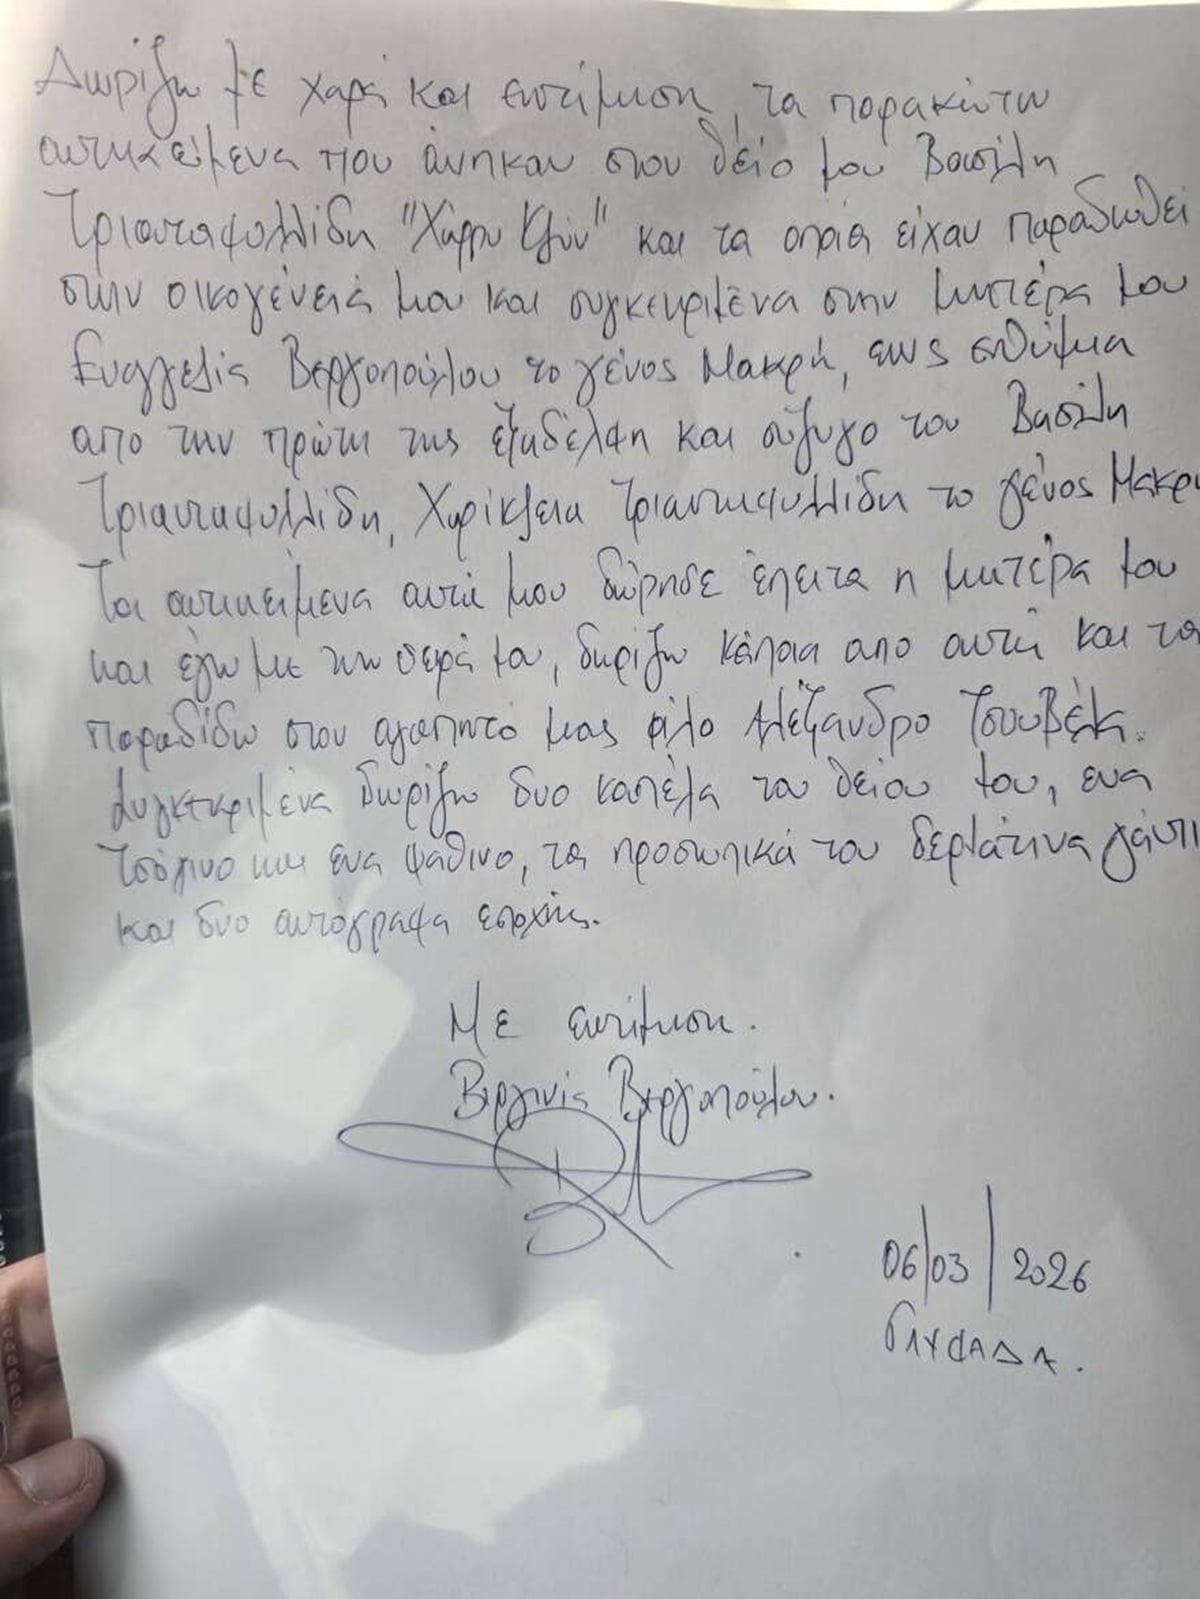 Δωρίζω με χαρά και εκτίμηση, τα παρακάτω
αντικείμενα που άνηκαν στον θείο μου Βασίλη
Τριανταφυλλίδη "Χάρρυ Κλύν" και τα οποία είχαν παραδωθεί
στην οικογένειά μου και συγκεκριμένα στην μητέρα μου
Ευαγγελία Βεργοπούλου το γένος Μακρή, εως ενθύμια
απο την πρώτη της εξαδέλφη και σύζυγο του Βασίλη
Τριανταφυλλίδη, Χαρίκλεια Τριανταφυλλίδη το γένος Μακρη
Τα αντικείμενα αυτά μου δώρησε έπειτα η μητέρα μου
και εγω με την σειρά μου, δωρίζω κάποια απο αυτά και τα
παραδίδω στον αγαπητό μας φίλο Αλέξανδρο Τσουβέλα.
Συγκεκριμένα δωρίζω δυο καπέλα του θείου μου, ενα
τσόχινο και ενα ψάθινο, τα προσωπικά του δερμάτινα γάντι
και δυο αυτόγραφα εποχής.
Με εκτίμηση.
Βιργινία Βεργοπούλου.
06/03/2026
ΓΛΥΦΑΔΑ.